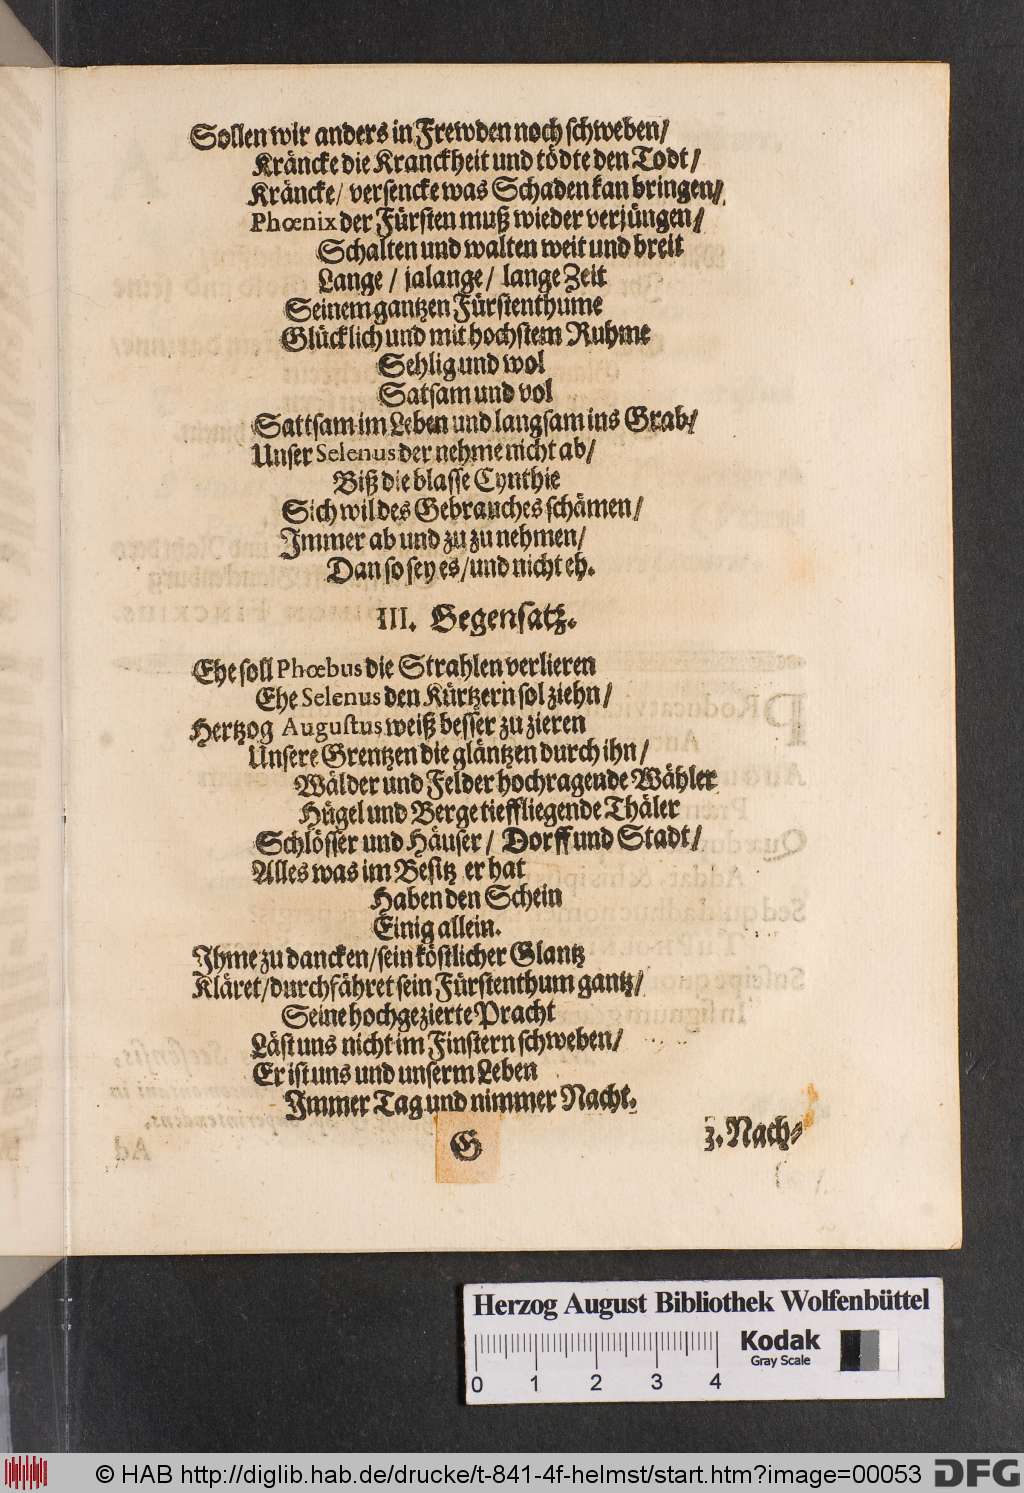 Sollen wir anders in Frewden noch schweben/
Kräncke die Kranckheit und tödte den Todt/
Kräncke/ versencke was Schaden kan bringen/
Phœnix der Fürsten muß wieder verjüngen/
Schalten und walten weit und breit
Lange / ja lange / lange Zeit
Seinem gantzen Fürstenthume
Glücklich und mit hochstem Ruhme
Sehlig und wol
Satsam und vol
Sattsam im Leben und langsam ins Grab/
Unser Selenus der nehme nicht ab/
Biß die blasse Cynthie
Sich wil des Gebrauches schämen/
Jmmer ab und zu zu nehmen/
Dan so sey es/ und nicht eh.
III. Gegensatz.
Ehe soll Phœbus die Strahlen verlieren
Ehe Selenus den Kürtzern sol ziehn/
Hertzog Augustus weiß besser zu zieren
Unsere Grentzen die gläntzen durch ihn/
Wälder und Felder hochragende Wähler
Hügel und Berge tieffliegende Thäler
Schlösser und Häuser / Dorff und Stadt/
Alles was im Besitz er hat
Haben den Schein
Einig allein.
Jhme zu dancken/ sein köstlicher Glantz
Kläret/ durchfähret sein Fürstenthum gantz/
Seine hochgezierte Pracht
Läst uns nicht im Finstern schweben/
Er ist uns und unserm Leben
Jmmer Tag und nimmer Nacht.
G
3. Nach-
Herzog August Bibliothek Wolfenbüttel
Kodak
Gray Scale
0 1 2 3 4
© HAB http://diglib.hab.de/drucke/t-841-4f-helmst/start.htm?image=00053
DFG